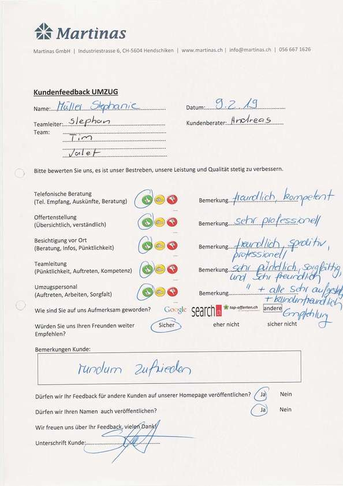 Martinas
Martinas GmbH | Industriestrasse 6, CH-5604 Hendschiken | www.martinas.ch | info@martinas.ch | 056 667 1626
Kundenfeedback UMZUG
Name: Müller Stephanie Datum: 9.2.19
Teamleiter: Stephan Kundenberater: Andreas
Team: Tim
Valet
Bitte bewerten Sie uns, es ist unser Bestreben, unsere Leistung und Qualität stetig zu verbessern.
Telefonische Beratung
(Tel. Empfang, Auskünfte, Beratung) Bemerkung freundlich, kompetent
Offertenstellung
(Übersichtlich, verständlich) Bemerkung sehr professionell
Besichtigung vor Ort
(Beratung, Infos, Pünktlichkeit) Bemerkung freundlich, speditiv,
professionell
Teamleitung
(Pünktlichkeit, Auftreten, Kompetenz) Bemerkung sehr pünktlich, sorgfältig
und sehr freundlich
Umzugspersonal
(Auftreten, Arbeiten, Sorgfalt) Bemerkung " + alle sehr aufgestellt
+ kundenfreundlich
Wie sind Sie auf uns Aufmerksam geworden? Google search.ch top-offerten.ch andere
Empfehlung
Würden Sie uns Ihren Freunden weiter Sicher eher nicht sicher nicht
Empfehlen?
Bemerkungen Kunde:
rundum zufrieden
Dürfen wir Ihr Feedback für andere Kunden auf unserer Homepage veröffentlichen? Ja Nein
Dürfen wir Ihren Namen auch veröffentlichen? Ja Nein
Wir freuen uns über Ihr Feedback, vielen Dank!
Unterschrift Kunde: